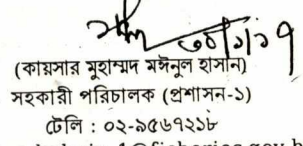 ৩০/১/১৭
(কায়সার মুহাম্মদ মঈনুল হাসান)
সহকারী পরিচালক (প্রশাসন-১)
টেলি : ০২-৯৫৬৭২১৮